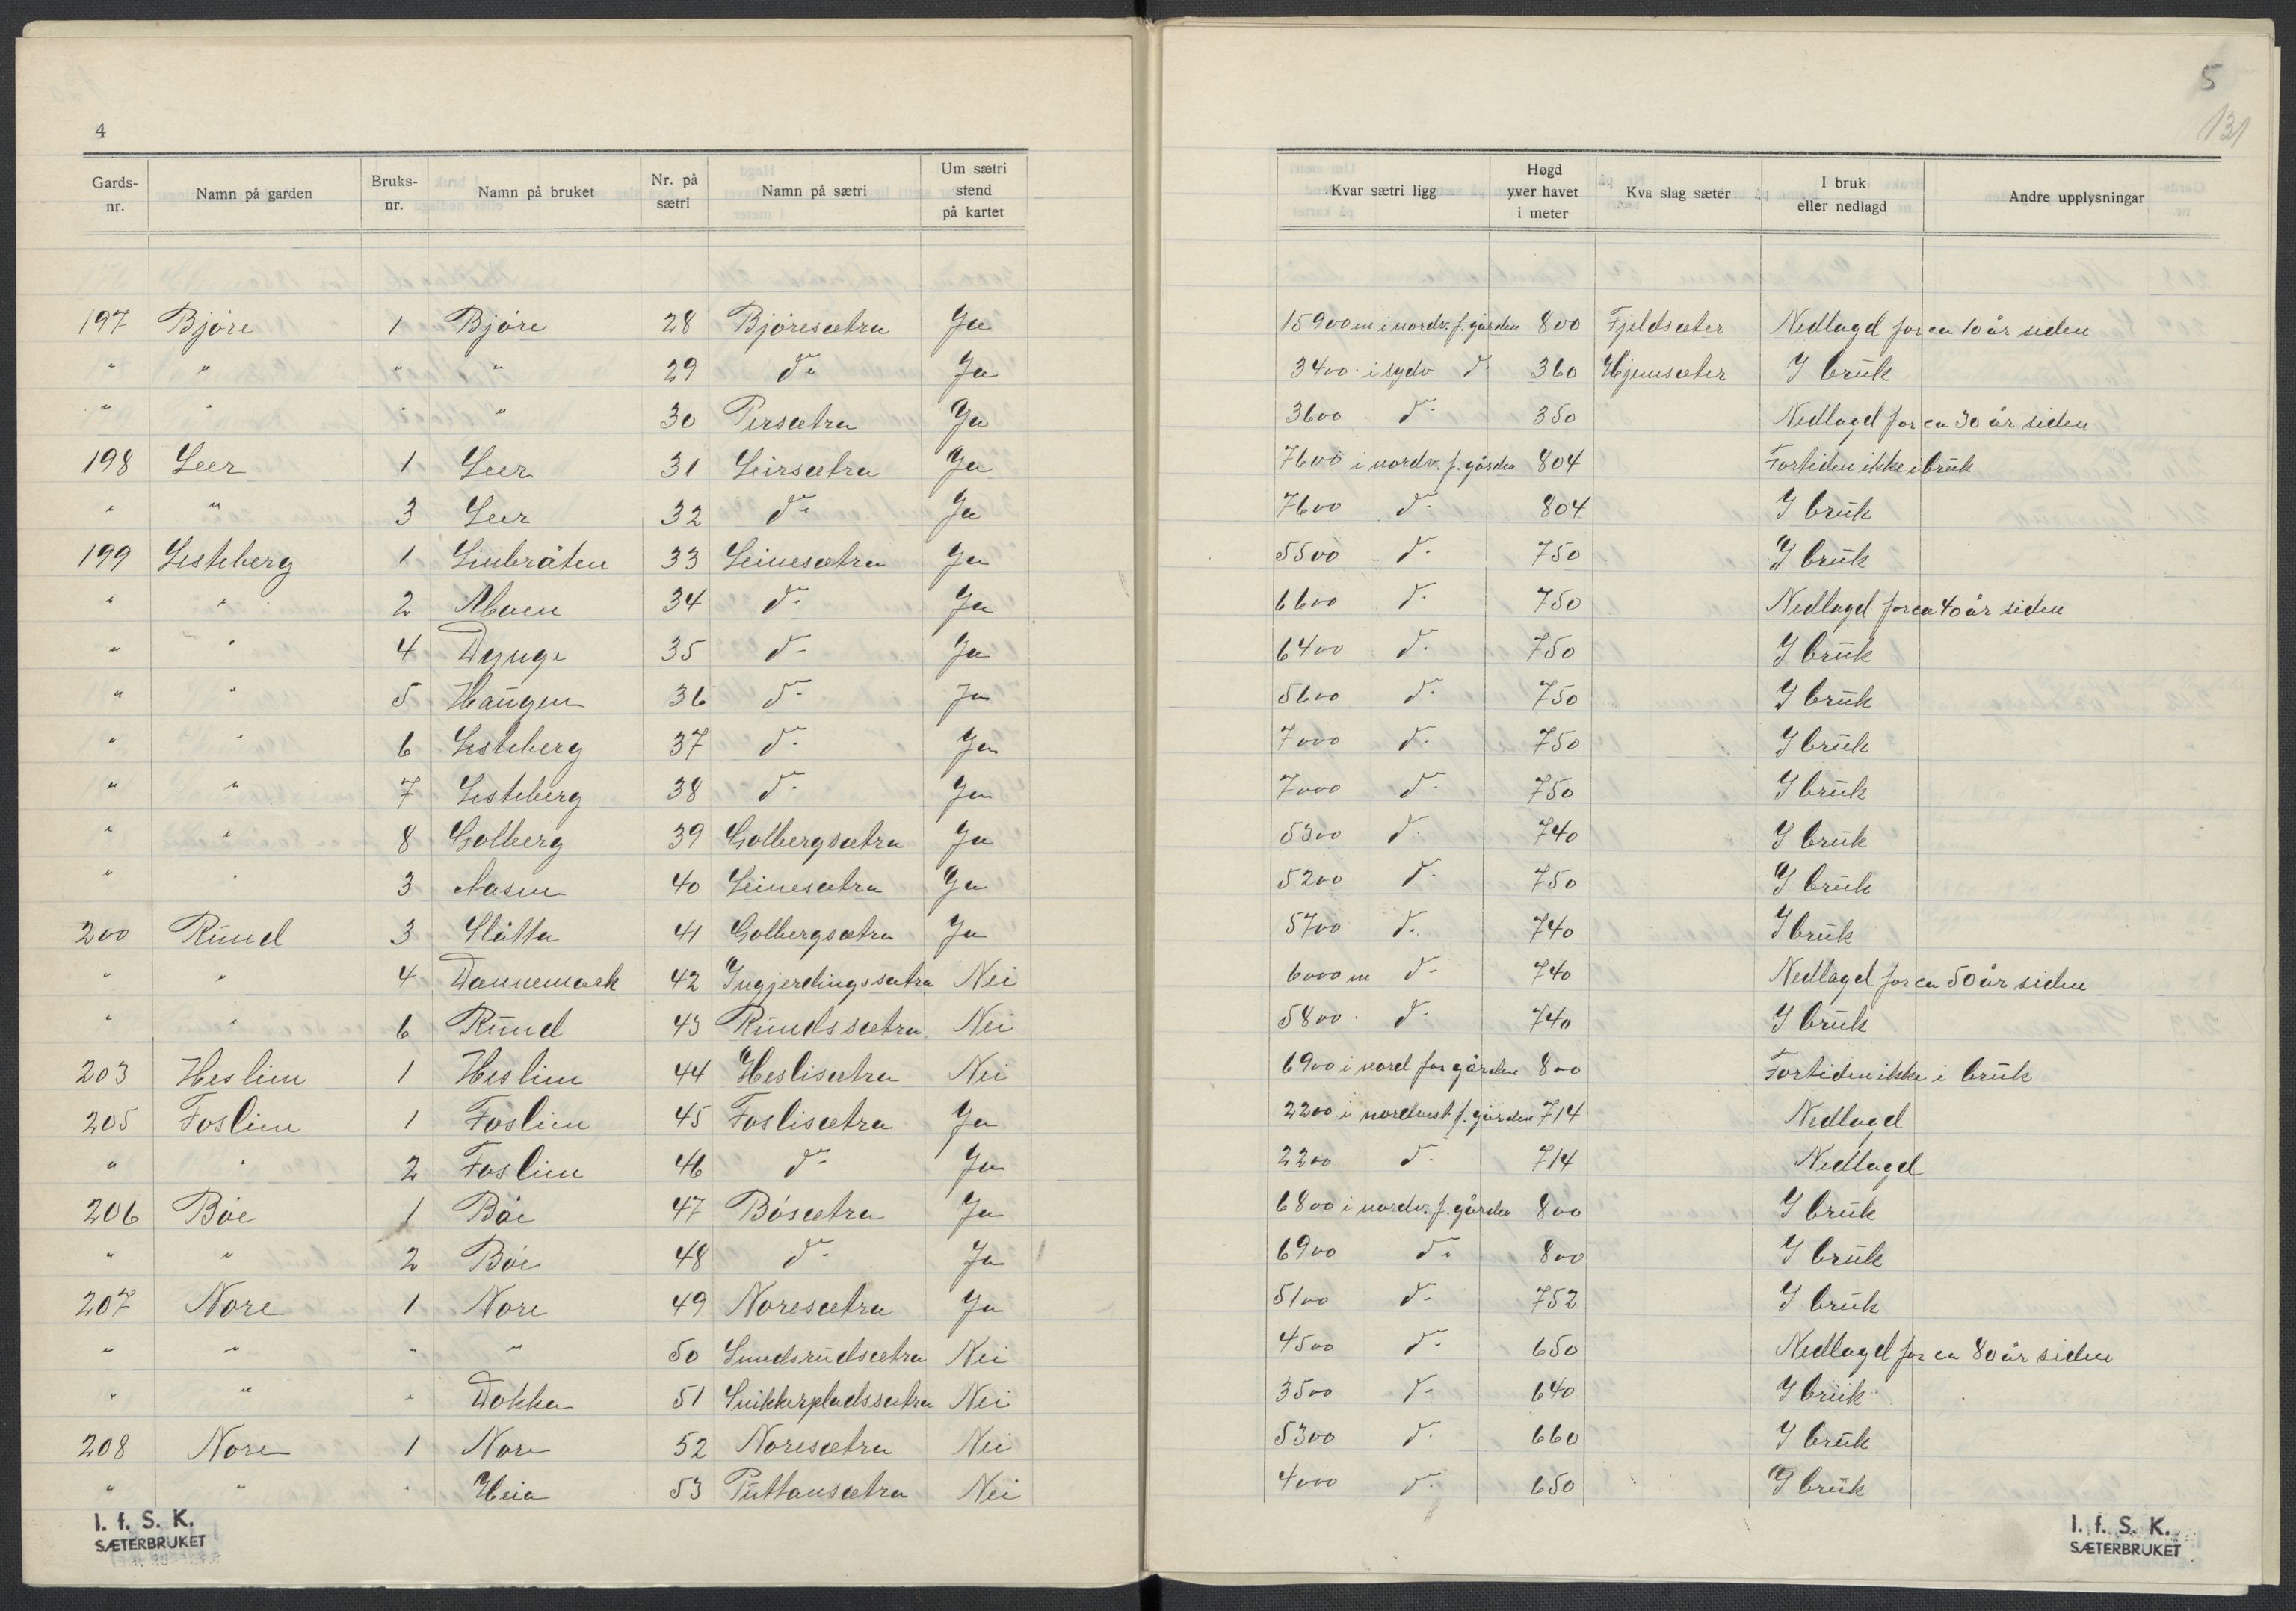 4
Gards-nr. Namn på garden Bruks-nr. Namn på bruket Nr. på sætri Namn på sætri Um sætri stend på kartet
197 Björe 1 Björe 28 Björesætra Ja
" " " " 29 do Ja
" " " " 30 Persætra Ja
198 Leer 1 Leer 31 Leirsætra Ja
" " 3 Leer 32 do Ja
199 Listeberg 1 Linbråten 33 Leinesætra Ja
" " 2 Moen 34 do Ja
" " 4 Dynge 35 do Ja
" " 5 Haugen 36 do Ja
" " 6 Listeberg 37 do Ja
" " 7 Listeberg 38 do Ja
" " 8 Golberg 39 Golbergsætra Ja
" " 3 Aasen 40 Leinesætra Ja
200 Ruud 3 Slåtta 41 Golbergsætra Ja
" " 4 Dannemark 42 Ingjerdingssætra Nei
" " 6 Ruud 43 Ruudssætra Nei
203 Heslien 1 Heslien 44 Heslisætra Nei
205 Foslien 1 Foslien 45 Foslisætra Ja
" " 2 Foslien 46 do Ja
206 Böe 1 Böe 47 Bösætra Ja
" " 2 Böe 48 do Ja
207 Nore 1 Nore 49 Noresætra Ja
" " " " 50 Lundsrudsætra Nei
" " " Dokka 51 Snikkerpladssætra Nei
208 Nore 1 Nore 52 Noresætra Nei
" " " Heia 53 Puttansætra Nei
I. f. S. K.
SÆTERBRUKET
5
131
Kvar sætri ligg Høgd yver havet i meter Kva slag sæter I bruk eller nedlagd Andre upplysningar
15900 m i nordv. f. gården 800 Fjeldsæter Nedlagd for ca 10 år siden
3400 i sydv do 360 Hjemsæter I bruk
3600 do 350 Nedlagd for ca 30 år siden
7600 i nordv. f. gården 804 Fortiden ikke i bruk
7600 do 804 I bruk
5500 do 750 I bruk
6600 do 750 Nedlagd for ca 40 år siden
6400 do 750 I bruk
5600 do 750 I bruk
7000 do 750 I bruk
7000 do 750 I bruk
5300 do 740 I bruk
5200 do 750 I bruk
5700 do 740 I bruk
6000 m do 740 Nedlagd for ca 50 år siden
5800 do 740 I bruk
6900 i nord for gården 800 Fortiden ikke i bruk
2200 i nordvest f. gården 714 Nedlagd
2200 do 714 Nedlagd
6800 i nordv. f. gården 800 I bruk
6900 do 800 I bruk
5100 do 752 I bruk
4500 do 650 Nedlagd for ca 80 år siden
3500 do 640 I bruk
5300 do 660 I bruk
4000 do 650 I bruk
I. f. S. K.
SÆTERBRUKET